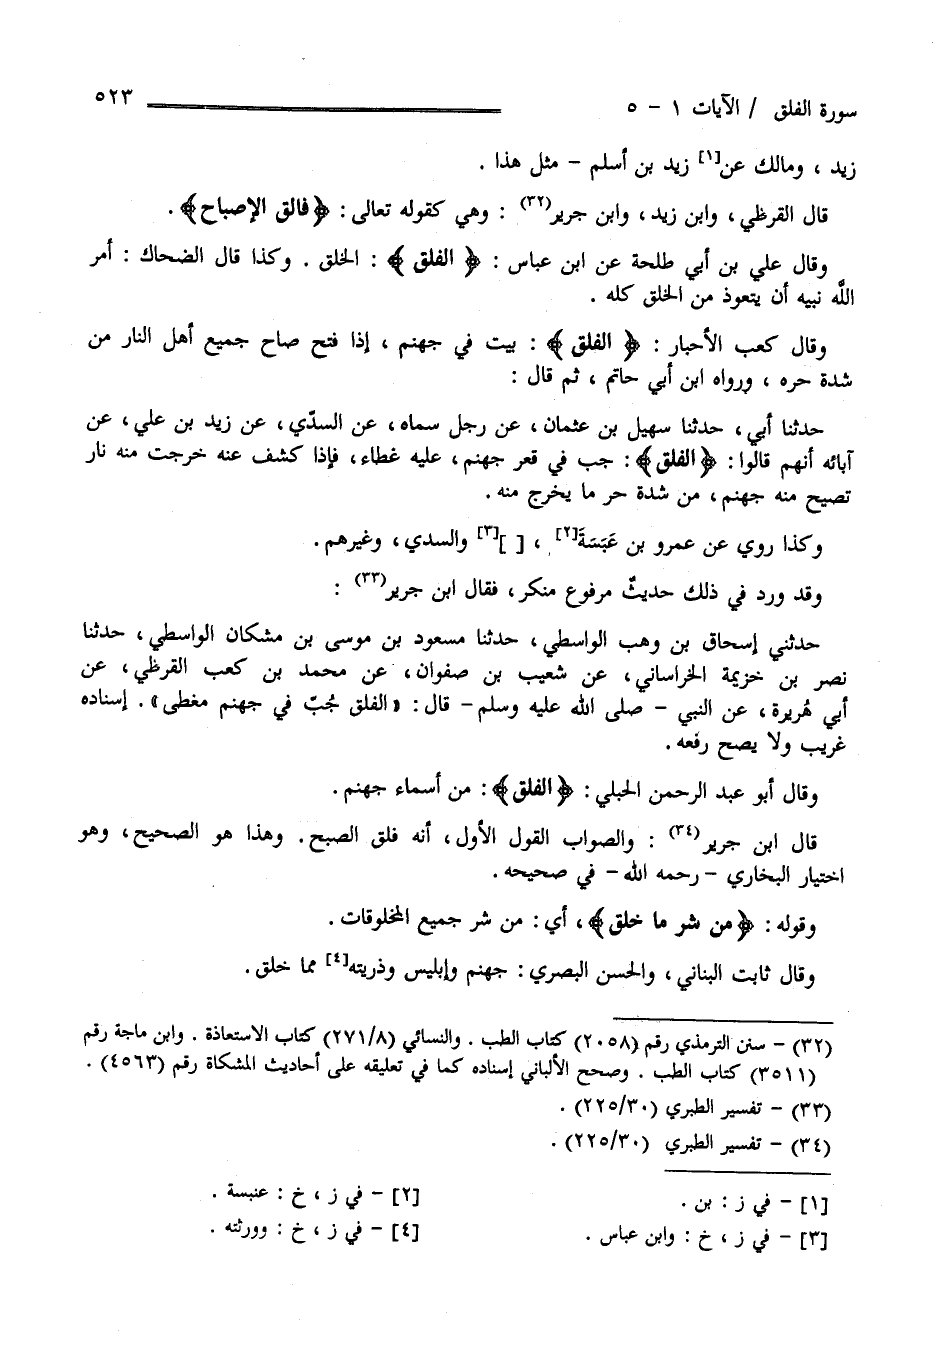 سورة الفلق / الآيات ١ - ٥ ٥٢٣
زيد ، ومالك عن[١] زيد بن أسلم - مثل هذا .
قال القرظي ، وابن زيد ، وابن جرير(٣٢) : وهي كقوله تعالى : ﴿فالق الإصباح﴾ .
وقال علي بن أبي طلحة عن ابن عباس : ﴿ الفلق ﴾ : الخلق . وكذا قال الضحاك : أمر
اللَّه نبيه أن يتعوذ من الخلق كله .
وقال كعب الأحبار : ﴿ الفلق ﴾ : بيت في جهنم ، إذا فتح صاح جميع أهل النار من
شدة حره ، ورواه ابن أبي حاتم ، ثم قال :
حدثنا أبي ، حدثنا سهيل بن عثمان ، عن رجل سماه ، عن السدّي ، عن زيد بن علي ، عن
آبائه أنهم قالوا : ﴿الفلق﴾ : جب في قعر جهنم ، عليه غطاء ، فإذا كشف عنه خرجت منه نار
تصيح منه جهنم ، من شدة حر ما يخرج منه .
وكذا روي عن عمرو بن عَبَسَةَ[٢] ، [ ][٣] والسدي ، وغيرهم .
وقد ورد في ذلك حديثٌ مرفوع منكر ، فقال ابن جرير(٣٣) :
حدثني إسحاق بن وهب الواسطي ، حدثنا مسعود بن موسى بن مشكان الواسطي ، حدثنا
نصر بن خزيمة الخراساني ، عن شعيب بن صفوان ، عن محمد بن كعب القرظي ، عن
أبي هُريرة ، عن النبي - صلى الله عليه وسلم - قال : «الفلق جُبّ في جهنم مغطى» . إسناده
غريب ولا يصح رفعه .
وقال أبو عبد الرحمن الحبلي : ﴿الفلق﴾ : من أسماء جهنم .
قال ابن جرير(٣٤) : والصواب القول الأول ، أنه فلق الصبح . وهذا هو الصحيح ، وهو
اختيار البخاري - رحمه الله - في صحيحه .
وقوله : ﴿من شر ما خلق﴾ ، أي : من شر جميع المخلوقات .
وقال ثابت البناني ، والحسن البصري : جهنم وإبليس وذريته[٤] مما خلق .
(٣٢) - سنن الترمذي رقم (٢٠٥٨) كتاب الطب . والنسائي (٢٧١/٨) كتاب الاستعاذة . وابن ماجة رقم
(٣٥١١) كتاب الطب . وصحح الألباني إسناده كما في تعليقه على أحاديث المشكاة رقم (٤٥٦٣) .
(٣٣) - تفسير الطبري (٢٢٥/٣٠) .
(٣٤) - تفسير الطبري (٢٢٥/٣٠) .
[١] - في ز : بن . [٢] - في ز ، خ : عنبسة .
[٣] - في ز ، خ : وابن عباس . [٤] - في ز ، خ : وورثته .